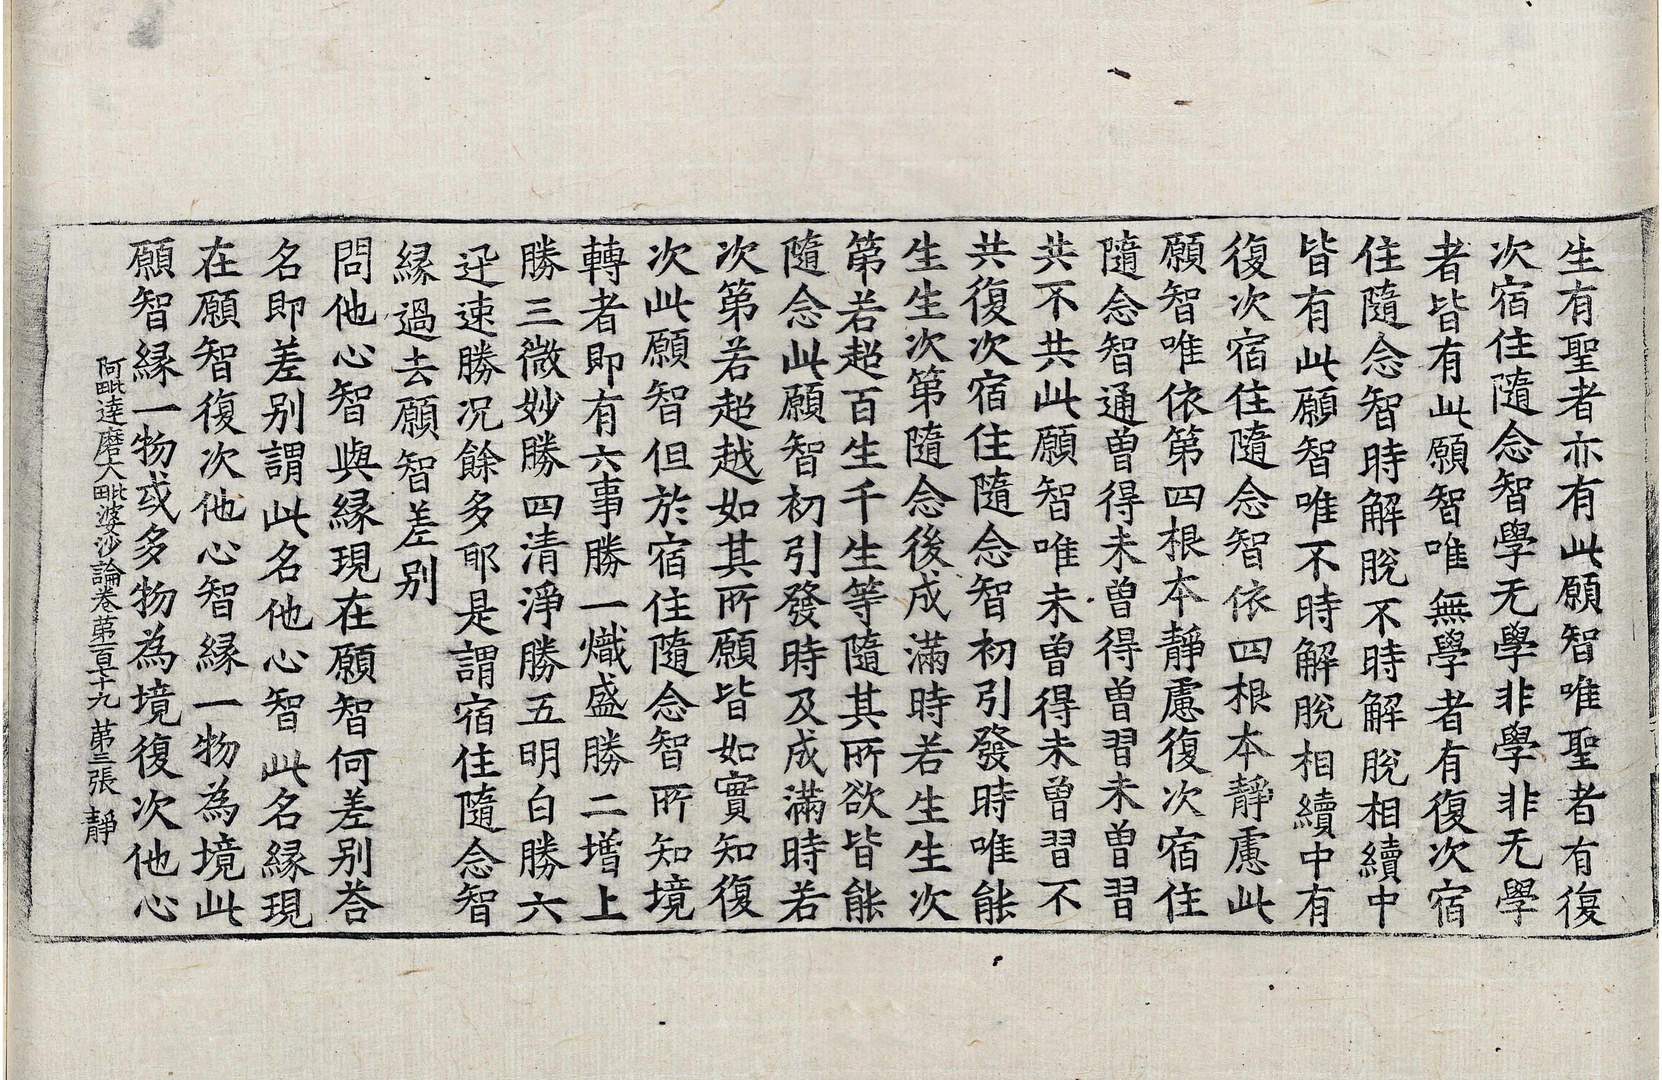 生有聖者亦有此願智唯聖者有復
次宿住隨念智學无學非學非无學
者皆有此願智唯無學者有復次宿
住隨念智時解脫不時解脫相續中
皆有此願智唯不時解脫相續中有
復次宿住隨念智依四根本靜慮此
願智唯依第四根本靜慮復次宿住
隨念智通曾得未曾得曾習未曾習
共不共此願智唯未曾得未曾習不
共復次宿住隨念智初引發時唯能
生生次第隨念後成滿時若生生次
第若超百生千生等隨其所欲皆能
隨念此願智初引發時及成滿時若
次第若超越如其所願皆如實知復
次此願智但於宿住隨念智所知境
轉者即有六事勝一熾盛勝二增上
勝三微妙勝四清淨勝五明白勝六
迅速勝况餘多耶是謂宿住隨念智
緣過去願智差別
問他心智與緣現在願智何差別荅
名即差別謂此名他心智此名緣現
在願智復次他心智緣一物為境此
願智緣一物或多物為境復次他心
阿毗達磨大毗婆沙論卷第百七十九 第三張 靜